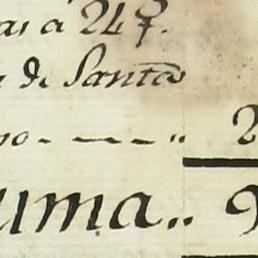 as á 24
de Santa
po - - - - " 2
uma.. 9